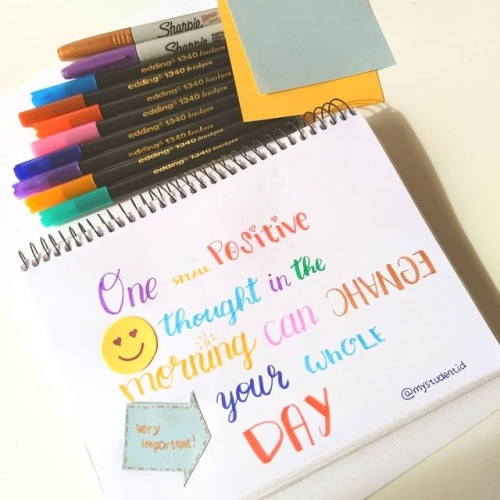 Sharpie
Sharpie
edding® 1340 brushpen
edding® 1340 brushpen
edding® 1340 brushpen
edding® 1340 brushpen
edding® 1340 brushpen
edding® 1340 brushpen
edding® 1340 brushpen
One SMALL Positive
thought in the
morning can CHANGE
your WHOLE
DAY
@mystudent.id
Very
important!